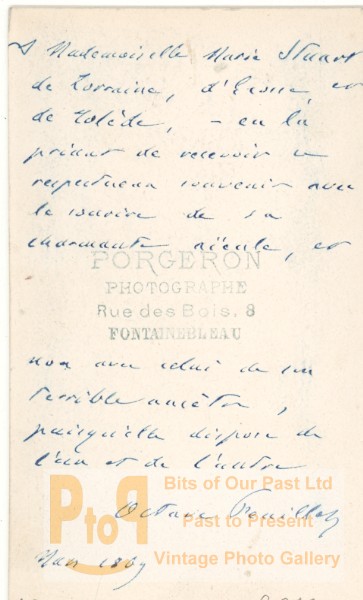 A Mademoiselle Marie Stuart
de Lorraine, d'Ecosse, et
de Tolède, – en la
priant de recevoir ce
respectueux souvenir avec
le sourire de sa
charmante aïeule, et
PORGERON
PHOTOGRAPHE
Rue des Bois. 8
FONTAINEBLEAU
non avec celui de son
terrible ancêtre,
puisqu'elle dispose de
l'un et de l'autre
Octave Feuillet
Mars 1869
PtoP
Bits of Our Past Ltd
Past to Present
Vintage Photo Gallery